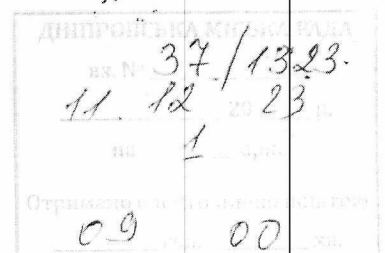 ДНІПРОВСЬКА МІСЬКА РАДА
вх. № 37/1323.
11. 12 20 23 р.
на 1 арк.
Отримано
09 00 хв.